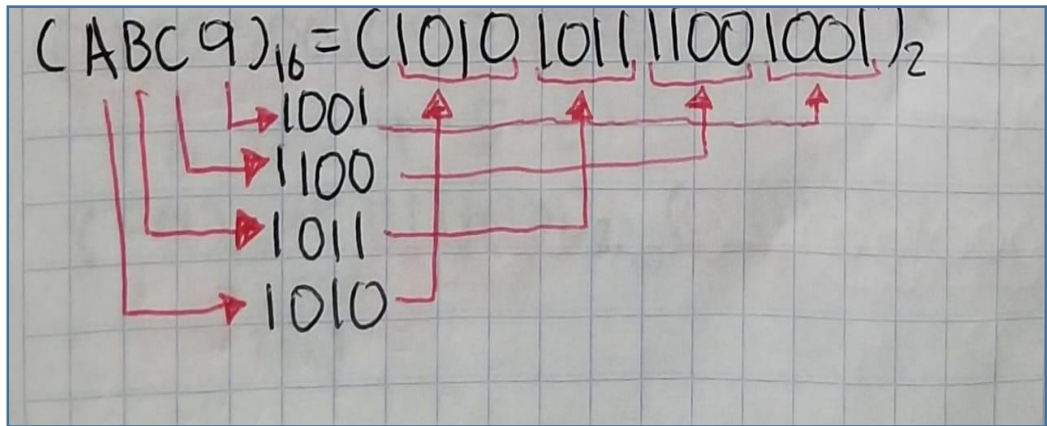 (ABC9)₁₆=(1010 1011 1100 1001)₂
1001
1100
1011
1010